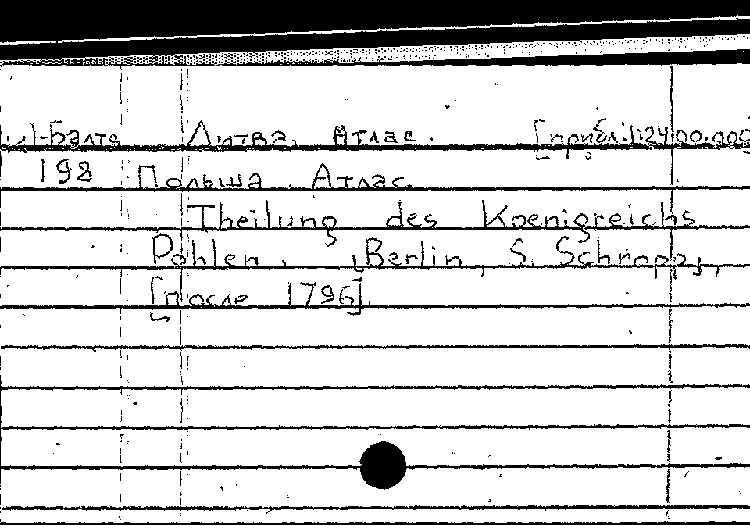 -Балто Литва. Атлас. [прибл.1:2400.000
198 Польша. Атлас.
Theilung des Koenigreichs
Pohlen. Berlin, S. Schropp,
[после 1796]